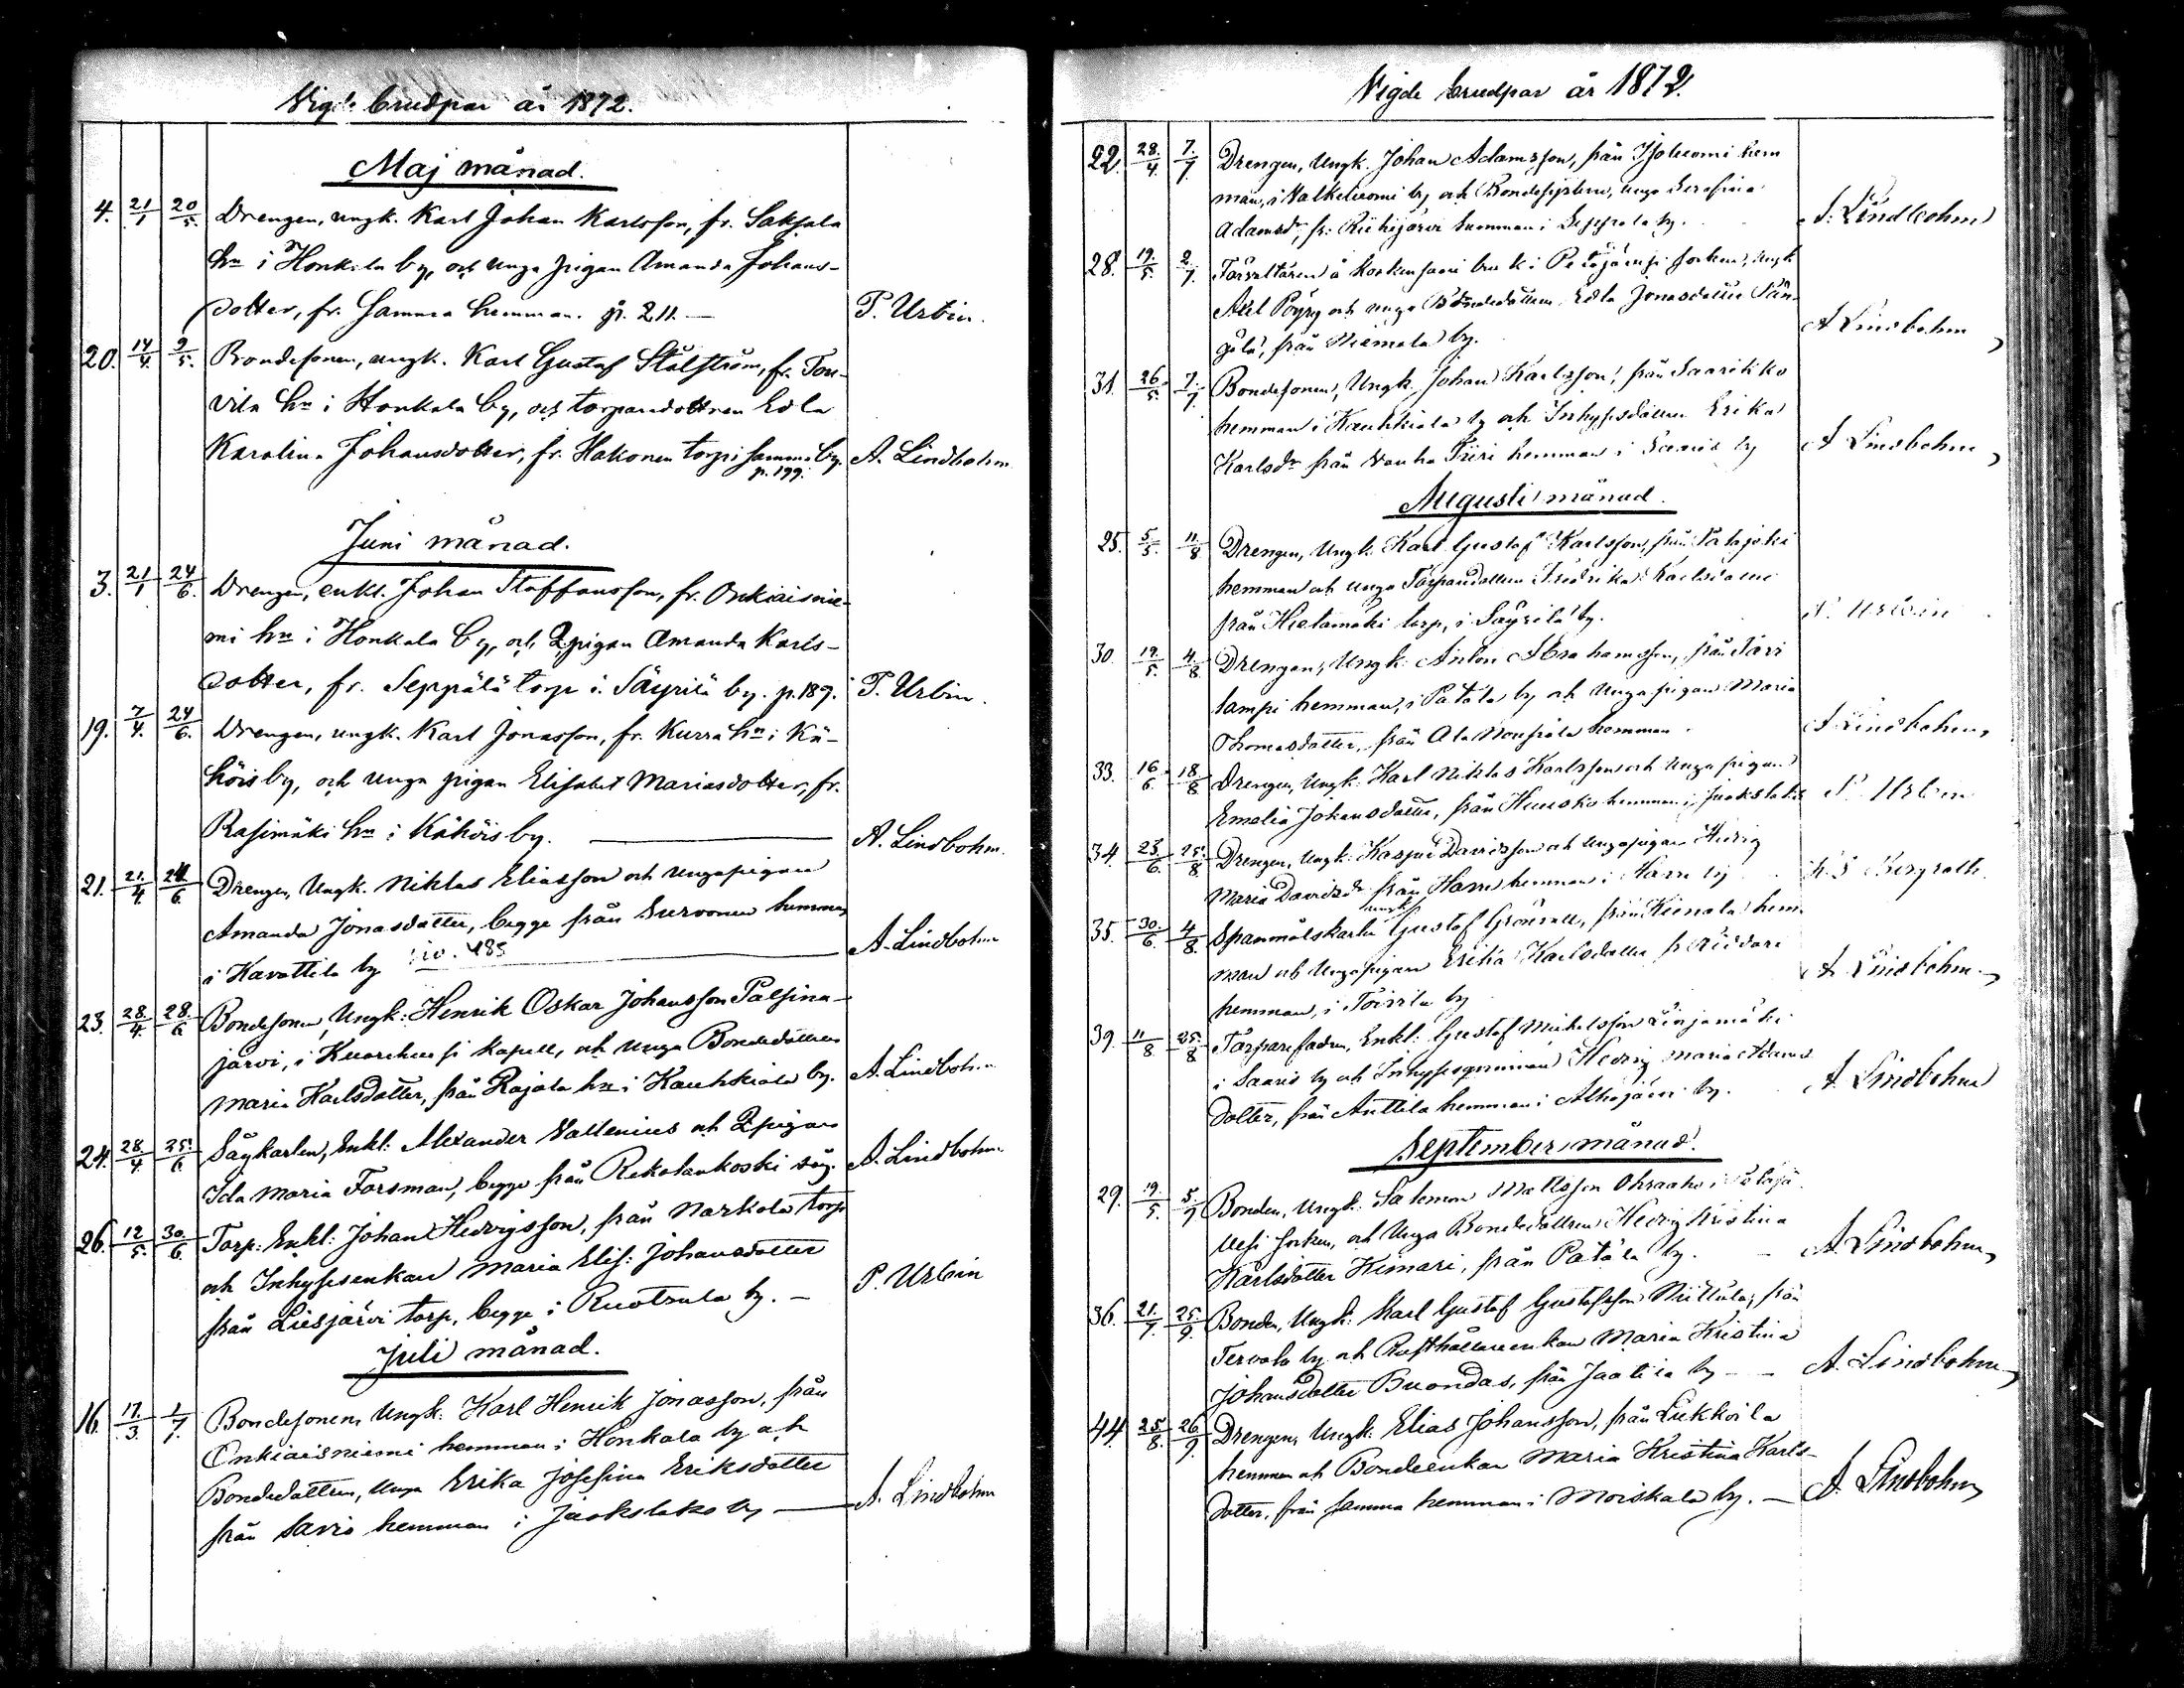 Vigde brudpar år 1872.
Maj månad.
4. 21/1 20/5. Drengen, ungk. Karl Johan Karlsson, fr. Sakjala
hn i Honkala by, och unga pigan Amanda Johans-
dotter, fr. samma hemman. p. 211. — T. Urbin.
20. 14/4. 9/5. Bondesonen, ungk. Karl Gustaf Stålström, fr. Ton-
vila hn i Honkala by, och torparedottren Edla
Karolina Johansdotter, fr. Hakonen torp i samma by. A. Lindbohm
p. 199.
Juni månad.
3. 21/1 24/6. Drengen, enkl. Johan Staffansson, fr. Onkiaisnie-
mi hn i Honkala by, och Qpigan Amanda Karls-
dotter, fr. Seppälä torp i Säyrilä by. p. 189. T. Urbin.
19. 7/4. 24/6. Drengen, ungk. Karl Jonasson, fr. Kurra hn i Kä-
höis by, och unga pigan Elisabet Mariasdotter, fr.
Rasimäki hn i Kähöis by. — A. Lindbohm.
21. 21/4 24/6 Drengen, Ungk. Niklas Eliasson och unga pigan
Amanda Jonasdotter, begge från hemman
i Kavattila by 485 — A. Lindbohm
23. 28/4. 28/6 Bondesonen, Ungk: Henrik Oskar Johansson Palsina-
järvi, i kapell, och unga Bondedottren
Maria Karlsdotter, från Rajala hn i Kauhkiala by. A. Lindbohm
24. 28/4 25/6 Sågkarlen, Enkl: Alexander Vallenius och Qpigan
Ida Maria Forsman, begge från Rekolankoski såg. A. Lindbohm
26. 12/5. 30/6. Torp: Enkl: Johan Hedvigsson, från Markola torp
och Inhysesenkan Maria Elis: Johansdotter
från Liesjärvi torp, begge i Ruotsula by. — P. Urbin
Juli månad.
16. 17/3. 1/7. Bondesonen, Ungk: Karl Henrik Jonasson, från
Onkiaisniemi hemman i Honkala by och
Bondedottren, unga Erika Josefina Eriksdotter
från Savio hemman i by — A. Lindbohm
Vigde brudpar år 1872.
22. 28/4. 7/7 Drengen, Ungk. Johan Adamsson, från hem
man, i by och Bondesystern, unga Serafina
Adamsdr, fr: Riihijärvi hemman i Seppola by. A. Lindbohm
28. 19/5. 2/7. Förvaltaren å bruk i socken, Ungk
Axel Pöyry och unga Bondedottren Edla Jonasdotter
från by. A Lindbohm
31. 26/5. 7/7. Bondesonen, Ungk. Johan Karlsson, från Saarikko
hemman i Kauhkiala by och Inhysesdottren Erika
Karlsdr från hemman i Saaris by A Lindbohm
Augusti månad.
25. 5/5. 11/8 Drengen, Ungk. Karl Gustaf Karlsson, från Patajoki
hemman och unga Torparedottren Fredrika Karlsdotter
från Hietamäki torp, i Säyrilä by. P. Urbin
30. 19/5. 4/8 Drengen, Ungk: Anton Abrahamsson, från
lampi hemman, i Patala by och Unga pigan Maria
Thomasdotter, från hemman. A Lindbohm
33. 16/6. 18/8 Drengen, Ungk: Karl Niklas Karlsson och Unga pigan
Emalia Johansdotter, från hemman i P. Urbin
34. 23/6. 25/8 Drengen, Ungk: Kasper Davidsson och Unga pigan Hedvig
Maria Davidsdr från hemman i by Bergroth.
35. 30/6. 4/8. Spanmålskarlen ungk Gustaf Grönvall, från hem-
man och Unga pigan Erika Karlsdotter fr Riddare
hemman, i by A. Lindbohm.
39. 11/8 25/8 Torparefadren, Enkl: Gustaf Mickelsson
i Saaris by och Inhysesqvinnan Hedvig Maria Adams
dotter, från Anttila hemman i Alhojärvi by. A. Lindbohm
September månad.
29. 19/5. 5/9 Bonden, Ungk: Salomon Mattsson i
socken, och Unga Bondedottren Hedvig Kristina
Karlsdotter Himari, från Patala by. A. Lindbohm
36. 21/7. 25/9. Bonden, Ungk: Karl Gustaf Gustafsson från
Tervala by och Rusthållareenkan Maria Kristina
Johansdotter Buondas, från by — A. Lindbohm
44. 25/8. 26/9 Drengen, Ungk: Elias Johansson, från
hemman och Bondeenkan Maria Kristina Karls-
dotter, från samma hemman i Moiskala by. — A. Lindbohm